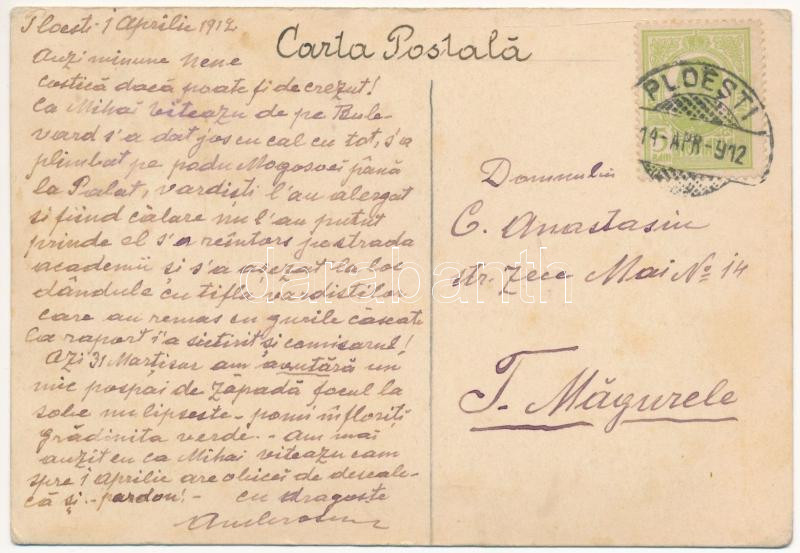 Ploesti 1 Aprilie 1912
Auzi minune nene
Costică dacă poate fi de crezut!
Ca Mihai Viteazu de pe Bule-
vard s'a dat jos cu cal cu tot, s'a
plimbat pe podu Mogosoei până
la Palat, vardisti l'au alergat
si fiind călare nu l'au putut
prinde el s'a reîntors pe strada
academii si s'a asezat la loc
dândule cu tifla vardistilor
care au remas cu gurile căscate
Ca raport i'a sictirit si comisarul!
Azi 31 Martisor am avutără un
mic pospai de zăpadă focul la
sobe nu lipseste - pomi înfloriti
grădinita verde. - Am mai
auzit eu ca Mihai viteazu cam
spre 1 Aprilie are obicei de descale-
că si - pardon! - cu dragoste
Carta Postală
PLOEȘTI
14-APR-912
Domnului
C. Anastasiu
str. Zece Mai No 14
T. Măgurele
darabanth